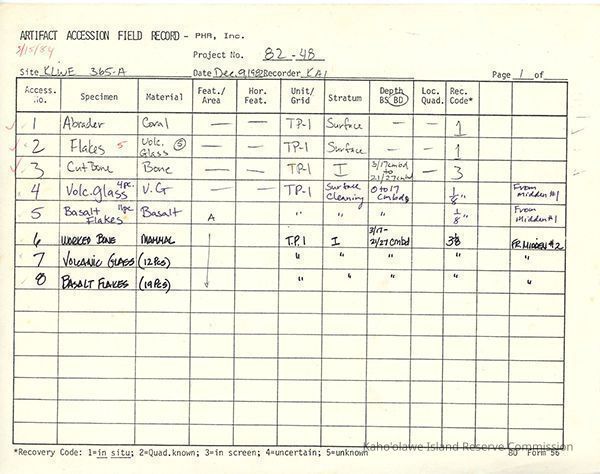 ARTIFACT ACCESSION FIELD RECORD - PHR, Inc.
3/15/84
Project No. 82-48
Site KLWE 365-A Date Dec. 9, 1982 Recorder KAI Page 1 of
Access. No. Specimen Material Feat./ Area Hor. Feat. Unit/ Grid Stratum Depth BS BD Loc. Quad. Rec. Code*
1 Abrader Coral — — TP-1 Surface — — 1
2 Flakes 5 Volc. Glass 5 — — TP-1 Surface — — 1
3 Cut Bone Bone — — TP-1 I 3/17cmbd to 21/27cmbd — 3
4 Volc. glass 4pc. V.G — — TP-1 Surface Cleaning 0 to 17 cmbd 1/8" From midden #1
5 Basalt Flakes Basalt A " " " 1/8" From Midden #1
6 WORKED BONE MAMMAL T.P. 1 I 3/17- 21/27 Cmbd FR. MIDDEN #2
7 VOLCANIC GLASS (12 PCS) " " " " "
8 BASALT FLAKES (19 PCS) " " " " "
*Recovery Code: 1=in situ; 2=Quad.known; 3=in screen; 4=uncertain; 5=unknown 80 Form 56
Kaho'olawe Island Reserve Commission